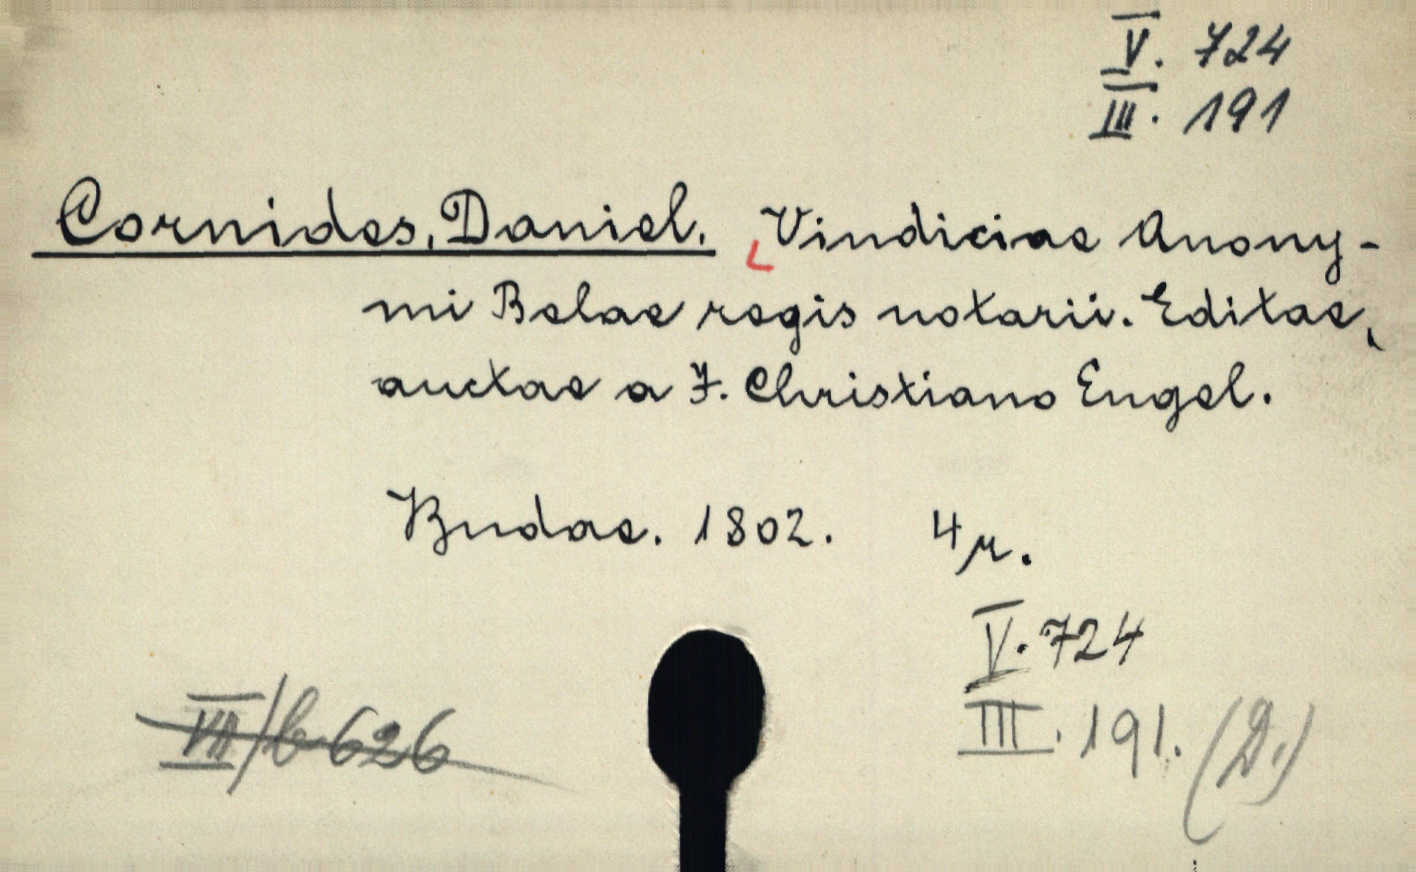 V. 724
III. 191
Cornides, Daniel. Vindiciae Anony-
mi Belae regis notarii. Editae,
auctae a J. Christiano Engel.
Budae. 1802. 4r.
V. 724
VII/b 626
III. 191. (D.)